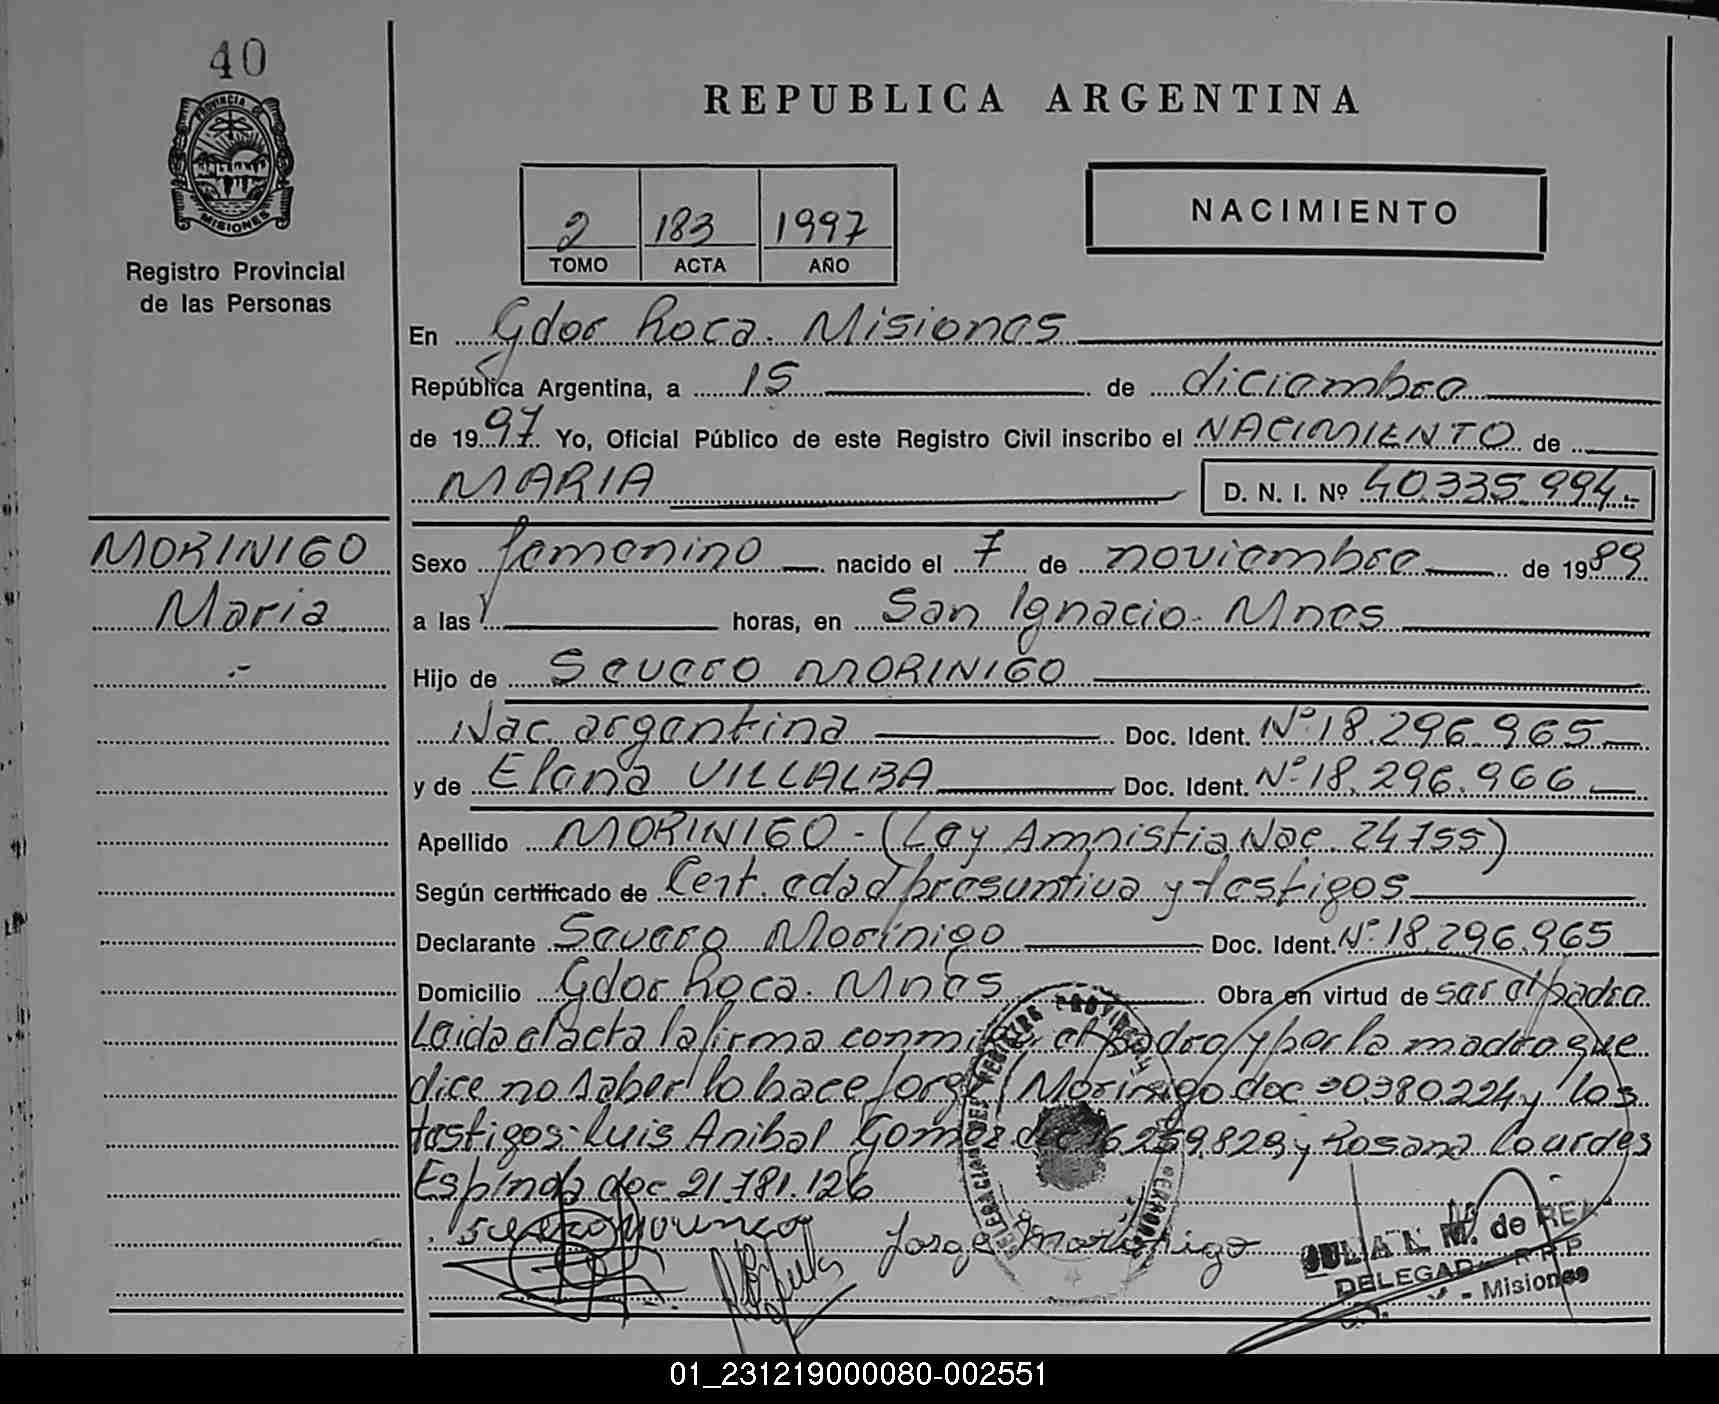 40
PROVINCIA DE
MISIONES
Registro Provincial
de las Personas
REPUBLICA ARGENTINA
2 183 1997
TOMO ACTA AÑO
NACIMIENTO
En Gdor Roca. Misiones
República Argentina, a 15 de diciembre
de 1997. Yo, Oficial Público de este Registro Civil inscribo el NACIMIENTO de
MARIA D. N. I. Nº 40.335.994.-
MORINIGO
Maria
.-
Sexo femenino nacido el 7 de noviembre de 1989
a las horas, en San Ignacio - Mnes
Hijo de Severo MORINIGO
Nac. argentina Doc. Ident. Nº 18.296.965
y de Elena VILLALBA Doc. Ident. Nº 18.296.966
Apellido MORINIGO - (Ley Amnistia Nac. 24.755)
Según certificado de Cert. edad presuntiva y testigos
Declarante Severo Morinigo Doc. Ident. Nº 18.296.965
Domicilio Gdor Roca. Mnes Obra en virtud de ser el padre.
Leida el acta la firma conmigo el padre y por la madre que
dice no saber lo hace Jorge Morinigo doc 30380224 y los
testigos: Luis Anibal Gomez 6259.829 y Rosana Lourdes
Espindola doc 21.781.126
Jorge Morinigo
M. de REA
DELEGADA R.P.P.
- Misiones
01_231219000080-002551